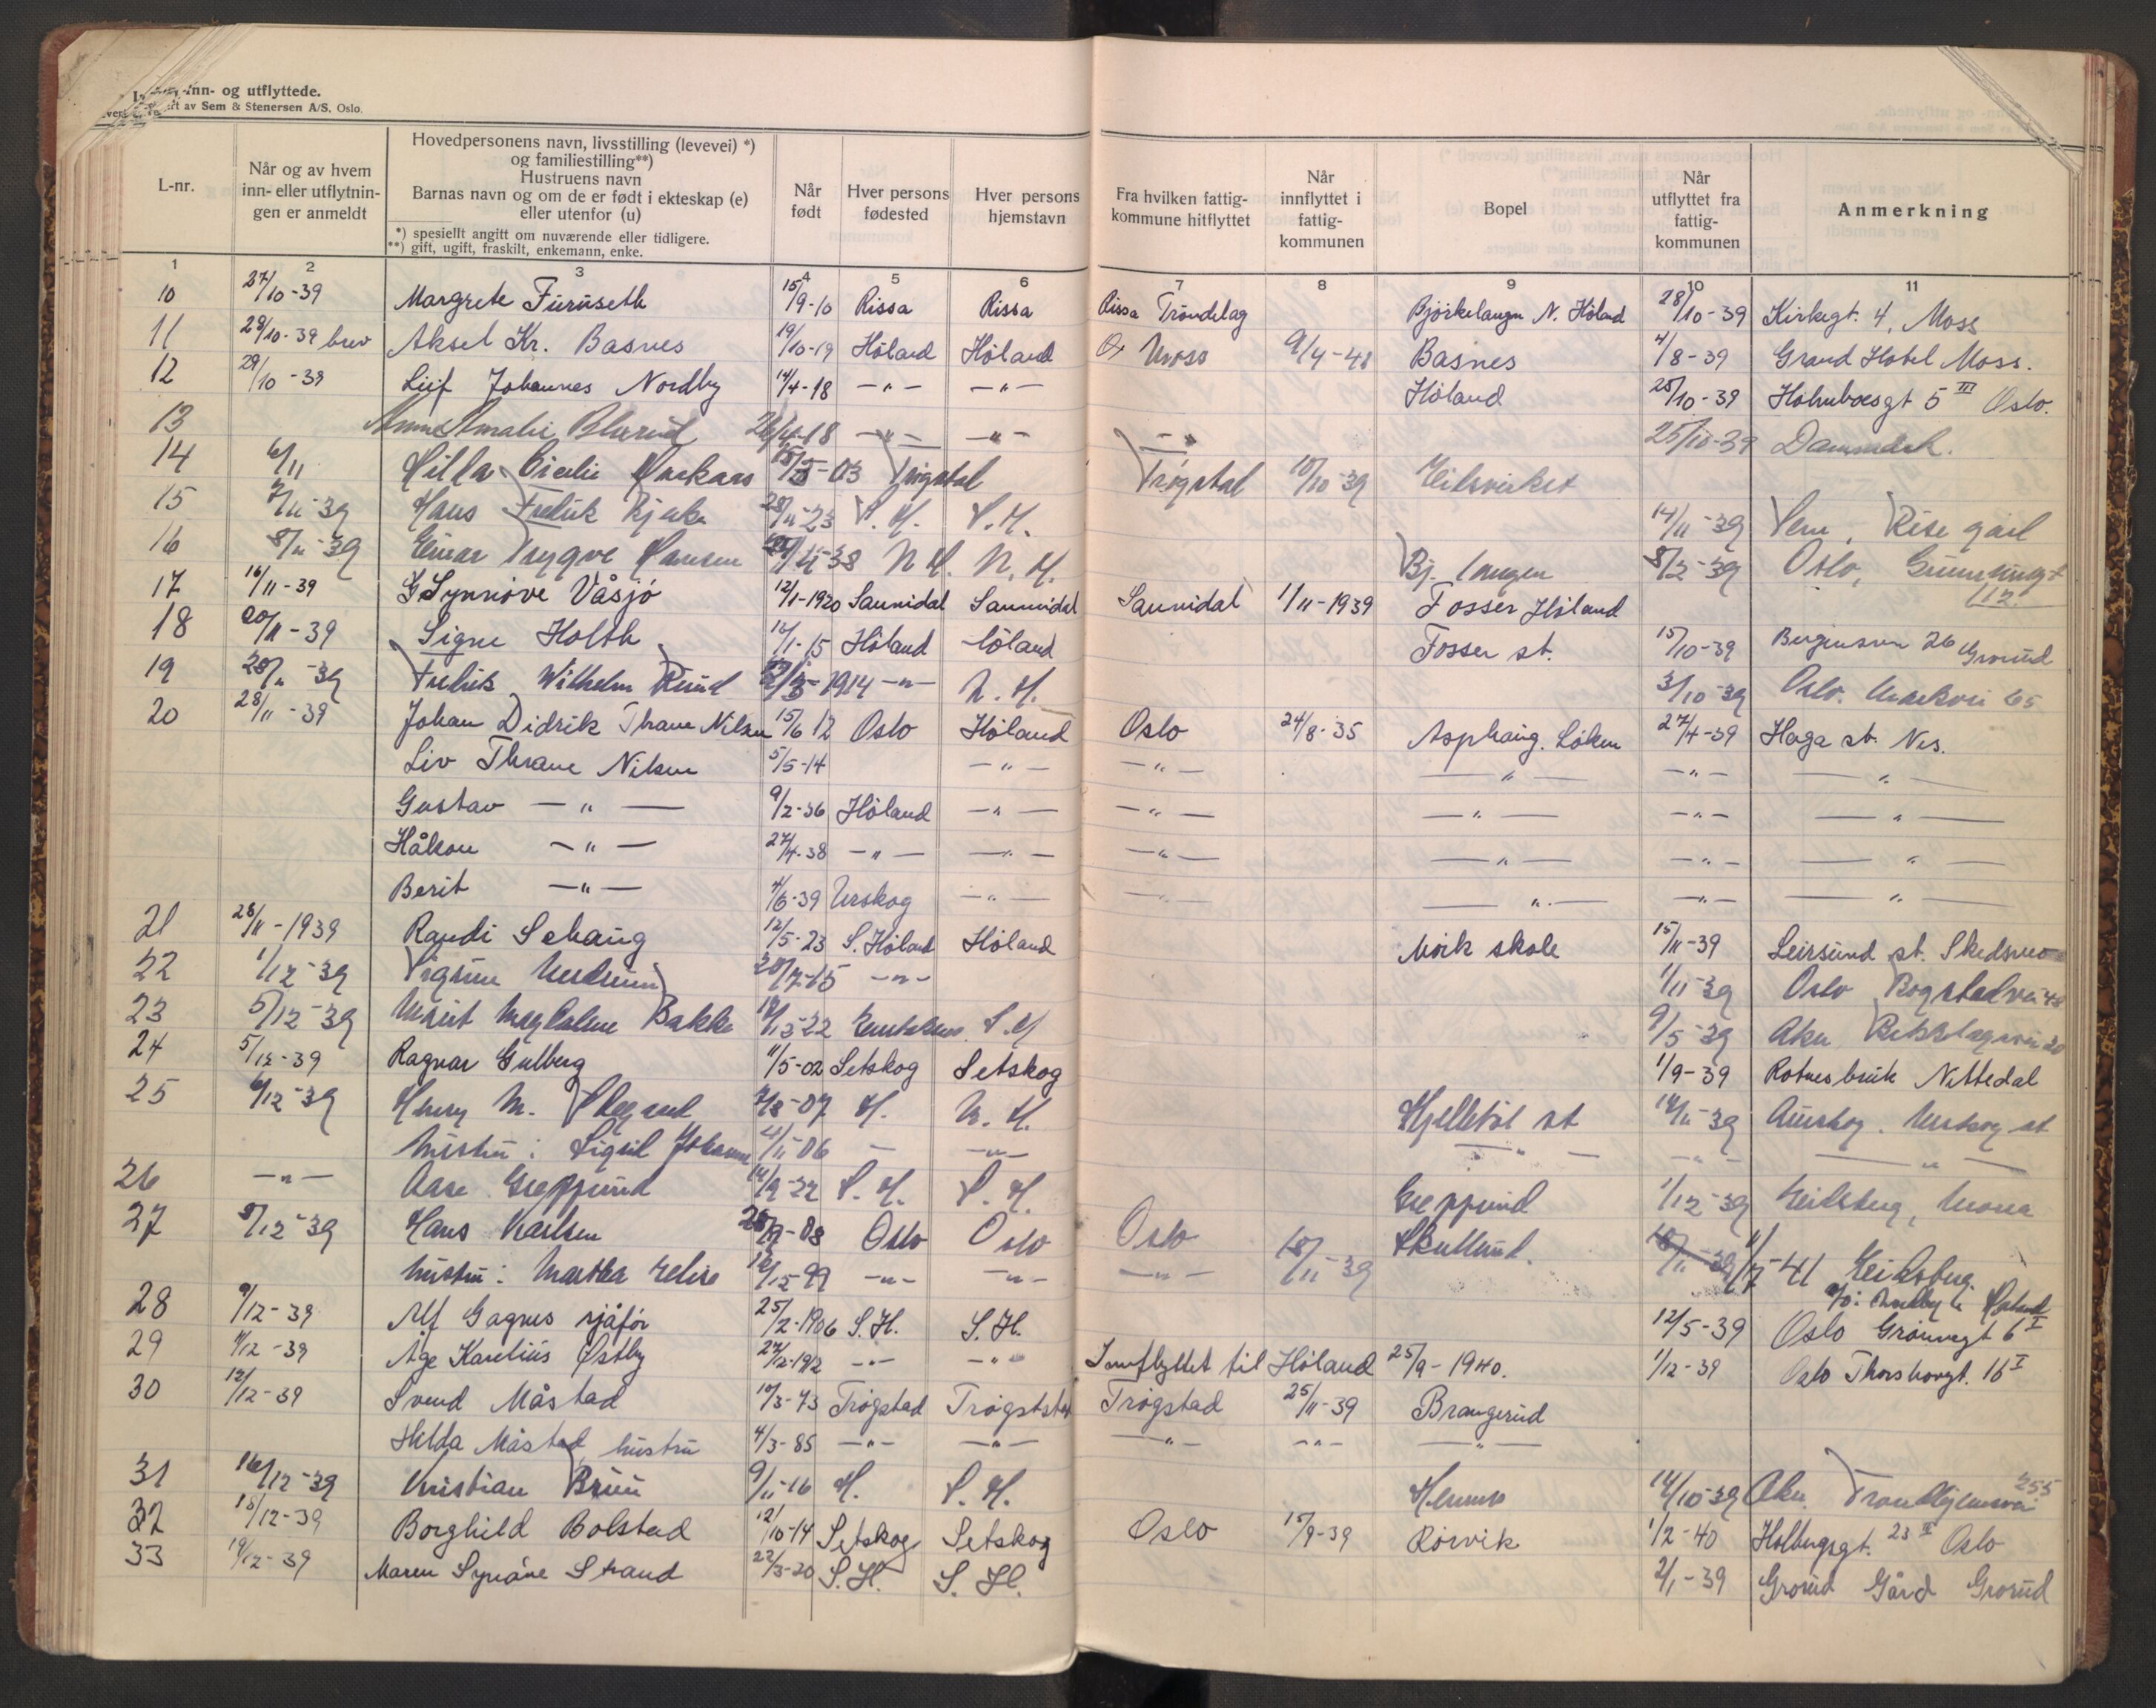 inn- og utflyttede.
av Sem & Stenersen A/S. Oslo.
L-nr. | Når og av hvem inn- eller utflytnin- gen er anmeldt | Hovedpersonens navn, livsstilling (levevei) *) og familiestilling**) Hustruens navn Barnas navn og om de er født i ekteskap (e) eller utenfor (u) *) spesiellt angitt om nuværende eller tidligere. **) gift, ugift, fraskilt, enkemann, enke. | Når født | Hver persons fødested | Hver persons hjemstavn | Fra hvilken fattig- kommune hitflyttet | Når innflyttet i fattig- kommunen | Bopel | Når utflyttet fra fattig- kommunen | Anmerkning
1 2 3 4 5 6 7 8 9 10 11
10 27/10-39 Margrete Furuseth 15/9-10 Rissa Rissa Rissa Trøndelag Bjørkelangen N. Høland 28/10-39 Kirkegt. 4, Moss
11 28/10-39 brev Aksel Kr. Basnes 19/10-19 Høland Høland Moss 9/4-48 Basnes 4/8-39 Grand Hotel Moss.
12 29/10-39 Leif Johannes Nordby 14/4-18 -"- -"- Høland 25/10-39 Holmboesgt 5 III Oslo.
13 Anna Amalie 18 -"- -"- -"- 25/10-39
14 6/11 Cicilie 03 Trøgstad Trøgstad 10/10-39
15 7/11-39 Hans Fredrik 28/11-23 S. H. S. H. 14/11-39 Rise gård
16 8/11-39 Einar Trygve Hansen 38 N. H. N. H. Bj. langen Oslo, 12
17 16/11-39 G Synnøve Våsjø 12/1-1920 Sannidal Sannidal Sannidal 1/11-1939 Fosser Høland
18 20/11-39 Signe Holth 12/1-15 Høland Høland Fosser st. 15/10-39 26 Grorud
19 28/11-39 Fredrik Wilhelm Rud 1914 -"- N. H. 3/10-39 Oslo. Markvei 65
20 28/11-39 Johan Didrik Thrane Nilsen 15/6 12 Oslo Høland Oslo 24/8-35 Asphaug. Løken 27/4-39 Haga st. Nes.
Liv Thrane Nilsen 5/5-14 -"- -"- -"- -"- -"-
Gustav -"- 9/2-36 Høland -"- -"- -"- -"- -"-
Håkon -"- 27/4-38 -"- -"- -"- -"- -"- -"-
Berit -"- 4/6-39 Urskog -"- -"- -"- -"- -"-
21 28/11-1939 Randi Sehaug 12/5-23 S. Høland Høland Mork skole 15/11-39 Leirsund st. Skedsmo
22 1/12-39 Sigrun 20/7-15 -"- 1/11-39 Oslo Rogstadvei 48
23 5/12-39 Marit Magdalene Bakke 22 S. H 9/5-39 Aker 20
24 5/12-39 Ragnar Gulberg 11/5-02 Setskog Setskog 1/9-39 Rotnesbruk Nittedal
25 6/12-39 Henry M. 7/8-07 H. N. H. Hjelletøl st 14/11-39 Aurskog. Urskog st
hustru: Sigrid Johanne 4/11-06 - -"- -"- -"- -"-
26 -"- Aase Greppérud 14/9-22 S. H. S. H. Greppérud 1/12-39 Eidsberg, Mona
27 8/12-39 Hans Karlsen 08 Oslo Oslo Oslo 18/11-39 Skullerud. 18/11-39 1/7-41 Eidsberg.
hustru: Martha Elise 12/12-99 -"- -"- -"-
28 9/12-39 Alf Gagnes sjåfør 25/2-1906 S. H. S. H. 12/5-39 Oslo Grønnegt 6 I
29 9/12-39 Åge Karelius Østby 27/12-192 -"- -"- Innflyttet til Høland 25/9-1940. 1/12-39 Oslo Thorshovgt. 16 I
30 12/12-39 Svend Måstad 10/3-73 Trøgstad Trøgstsd Trøgstad 25/11-39 Brangerud
Helda Måstad, hustru 4/3-85 -"- -"- -"- -"- -"-
31 16/12-39 Kristian Bruu 9/11-16 H. S. H. Hemnes 14/10-39 Aker. Trondhjemsvei 255
32 15/12-39 Borghild Bolstad 12/10-14 Setskog Setskog Oslo 15/9-39 Rørvik 1/2-40 Holbergsgt. 23 II Oslo
33 19/12-39 Maren Synøve Strand 22/3-20 S. H. S. Hl. 2/1-39 Grorud Gård Grorud